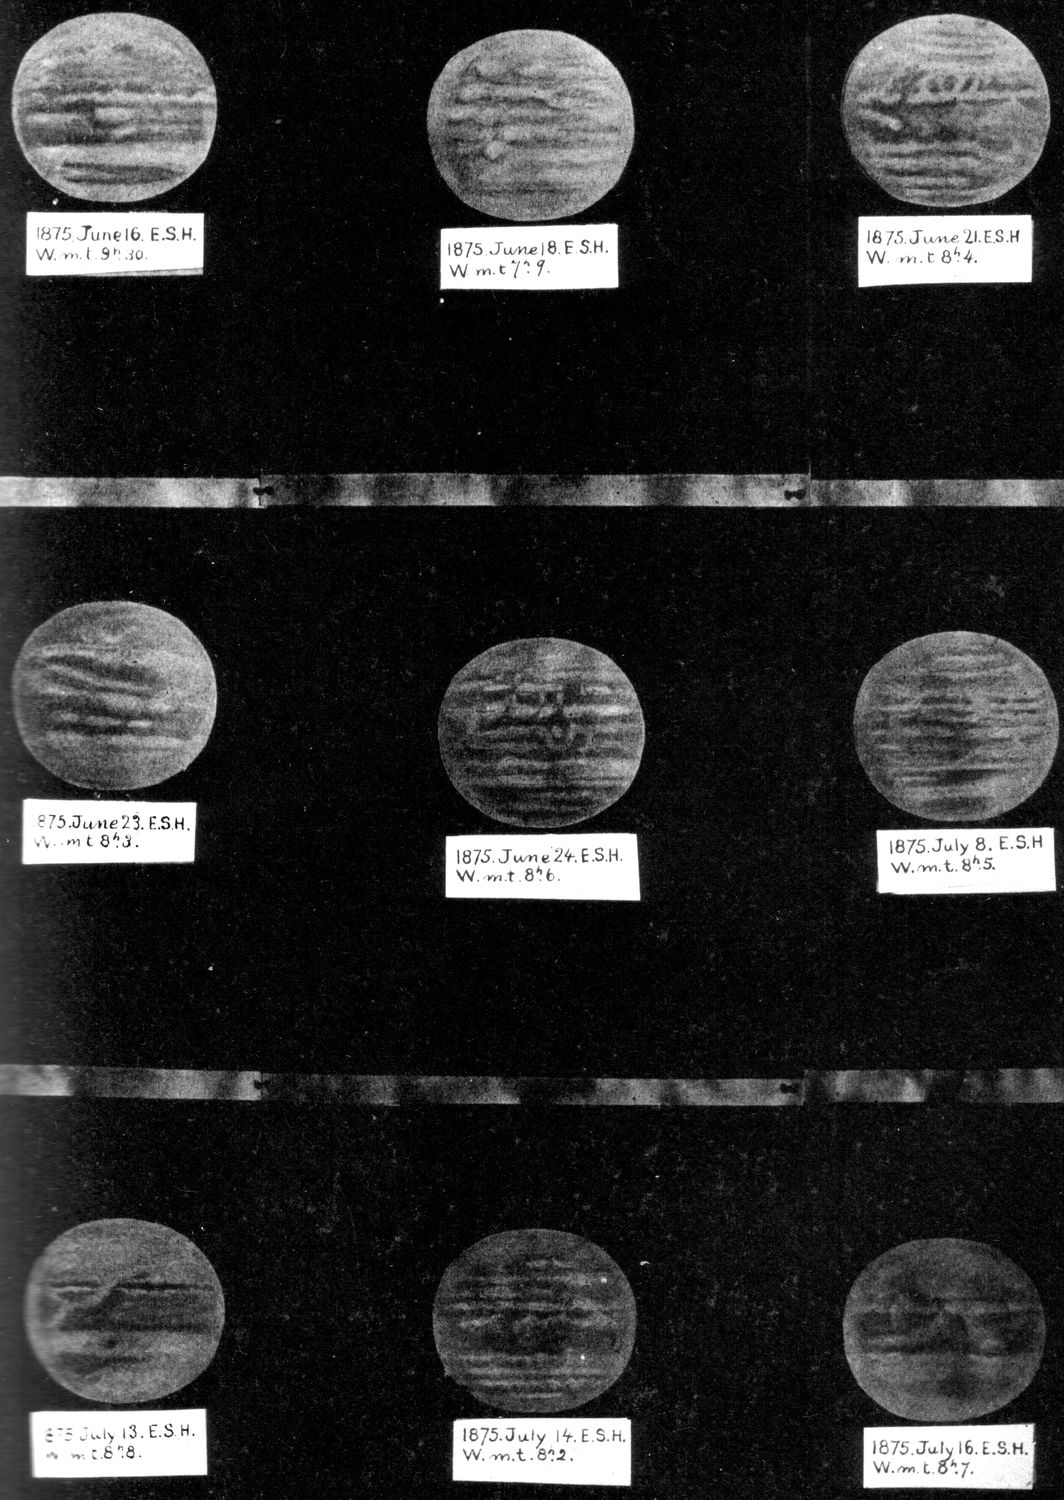 1875. June 16. E.S.H.
W. m.t. 9ʰ.30.
1875. June 18. E.S.H.
W m.t 7ʰ.9.
1875. June 21. E.S.H
W. m.t 8ʰ.4.
875. June 23. E.S.H.
W. m t 8ʰ.3.
1875. June 24. E.S.H.
W. m.t. 8ʰ.6.
1875. July 8. E.S.H
W. m.t. 8ʰ.5.
875 July 13. E.S.H.
m t. 8ʰ.8.
1875. July 14. E.S.H.
W. m.t. 8ʰ.2.
1875. July 16. E.S.H.
W. m.t. 8ʰ.7.